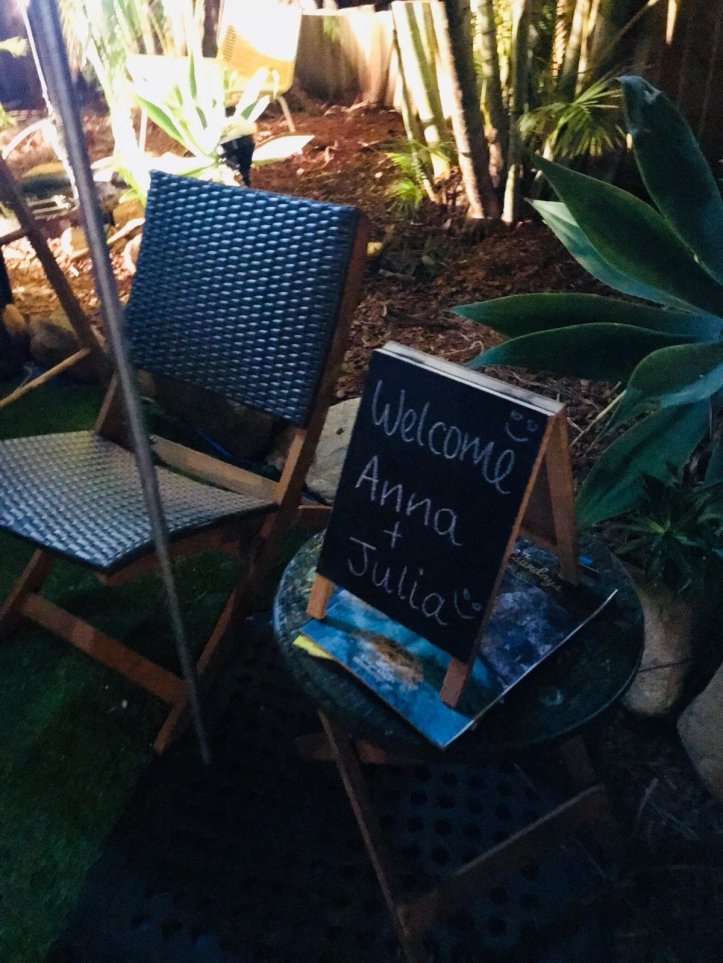 Welcome
Anna
+
Julia